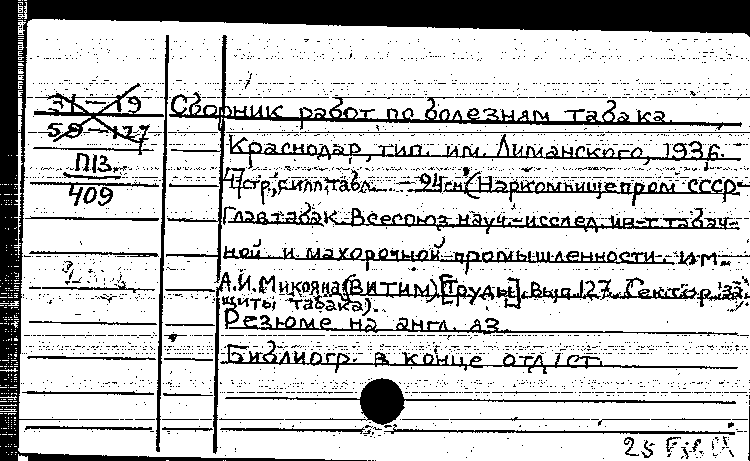 31 - 19
59 - 177
П13.
409
Сборник работ по болезням табака.
Краснодар, тип. им. Лиманского, 1936.
47стр., с илл; табл. - 24см. (Наркомпищепром СССР.
Главтабак. Всесоюз. науч.-исслед. ин-т табач-
ной и махорочной промышленности им.
А.И. Микояна (ВИТИМ). [Труды]. Вып. 127. Сектор за-
щиты табака).
Резюме на англ. яз.
Библиогр. в конце отд. ст.